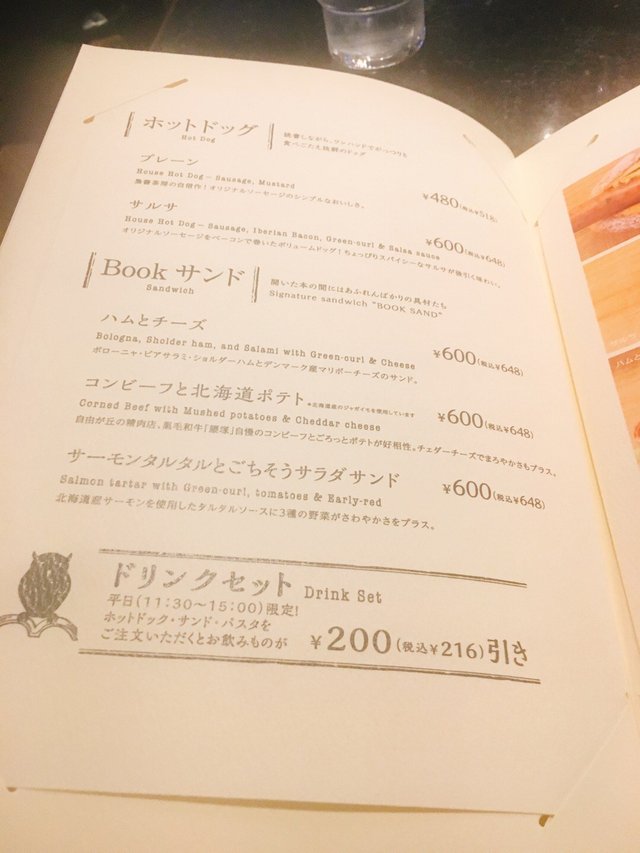 ホットドッグ
Hot Dog
読書しながら、ワンハンドでがっつりと
食べごたえ抜群のドッグ
プレーン
House Hot Dog – Sausage, Mustard
¥480(税込¥518)
魯書茶房の自信作！オリジナルソーセージのシンプルなおいしさ。
サルサ
House Hot Dog – Sausage, Iberian Bacon, Green-curl & Salsa sauce
¥600(税込¥648)
オリジナルソーセージをベーコンで巻いたボリュームドッグ！ちょっぴりスパイシーなサルサが後引く味わい。
Book サンド
Sandwich
開いた本の間にはあふれんばかりの具材たち
Signature sandwich "BOOK SAND"
ハムとチーズ
Bologna, Sholder ham, and Salami with Green-curl & Cheese
¥600(税込¥648)
ボローニャ・ビアサラミ・ショルダーハムとデンマーク産マリボーチーズのサンド。
コンビーフと北海道ポテト ※北海道産のジャガイモを使用しています
Corned Beef with Mushed potatoes & Cheddar cheese
¥600(税込¥648)
自由が丘の精肉店、黒毛和牛「腰塚」自慢のコンビーフとごろっとポテトが好相性。チェダーチーズでまろやかさもプラス。
サーモンタルタルとごちそうサラダサンド
Salmon tartar with Green-curl, tomatoes & Early-red
¥600(税込¥648)
北海道産サーモンを使用したタルタルソースに3種の野菜がさわやかさをプラス。
ドリンクセット Drink Set
平日(11:30～15:00)限定!
ホットドック・サンド・パスタを
ご注文いただくとお飲みものが ¥200(税込¥216)引き
ハムと